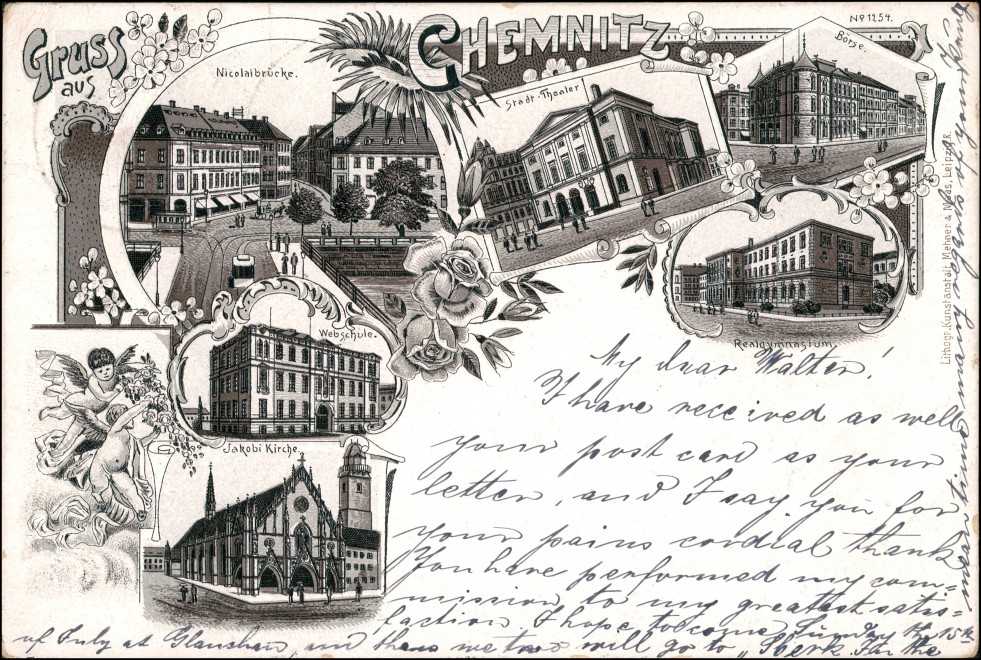 Gruss
aus
CHEMNITZ
No 1254.
Nicolaibrücke.
Stadt-Theater
Börse.
Realgymnasium.
Webschule.
Jakobi Kirche.
Lithogr. Kunstanstalt, Mehner & Maas, Leipzig R.
My dear Walter!
I have received as well
your post card as your
letter, and I say you for
your pains cordial thank
You have performed my com=
mission to my greatest satis=
faction. I hope to come Sunday the 15th
of July at Glauchau, and then we two will go to For the
meantime many regards of your